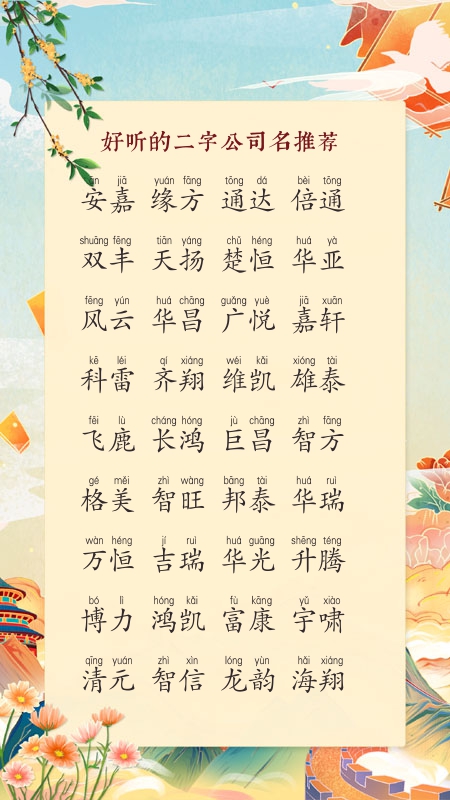 好听的二字公司名推荐
ān jiā yuán fāng tōng dá bèi tōng
安嘉 缘方 通达 倍通
shuāng fēng tiān yáng chǔ héng huá yà
双丰 天扬 楚恒 华亚
fēng yún huá chāng guǎng yuè jiā xuān
风云 华昌 广悦 嘉轩
kē léi qí xiáng wéi kǎi xióng tài
科雷 齐翔 维凯 雄泰
fēi lù cháng hóng jù chāng zhì fāng
飞鹿 长鸿 巨昌 智方
gé měi zhì wàng bāng tài huá ruì
格美 智旺 邦泰 华瑞
wàn héng jí ruì huá guāng shēng téng
万恒 吉瑞 华光 升腾
bó lì hóng kǎi fù kāng yǔ xiào
博力 鸿凯 富康 宇啸
qīng yuán zhì xìn lóng yùn hǎi xiáng
清元 智信 龙韵 海翔